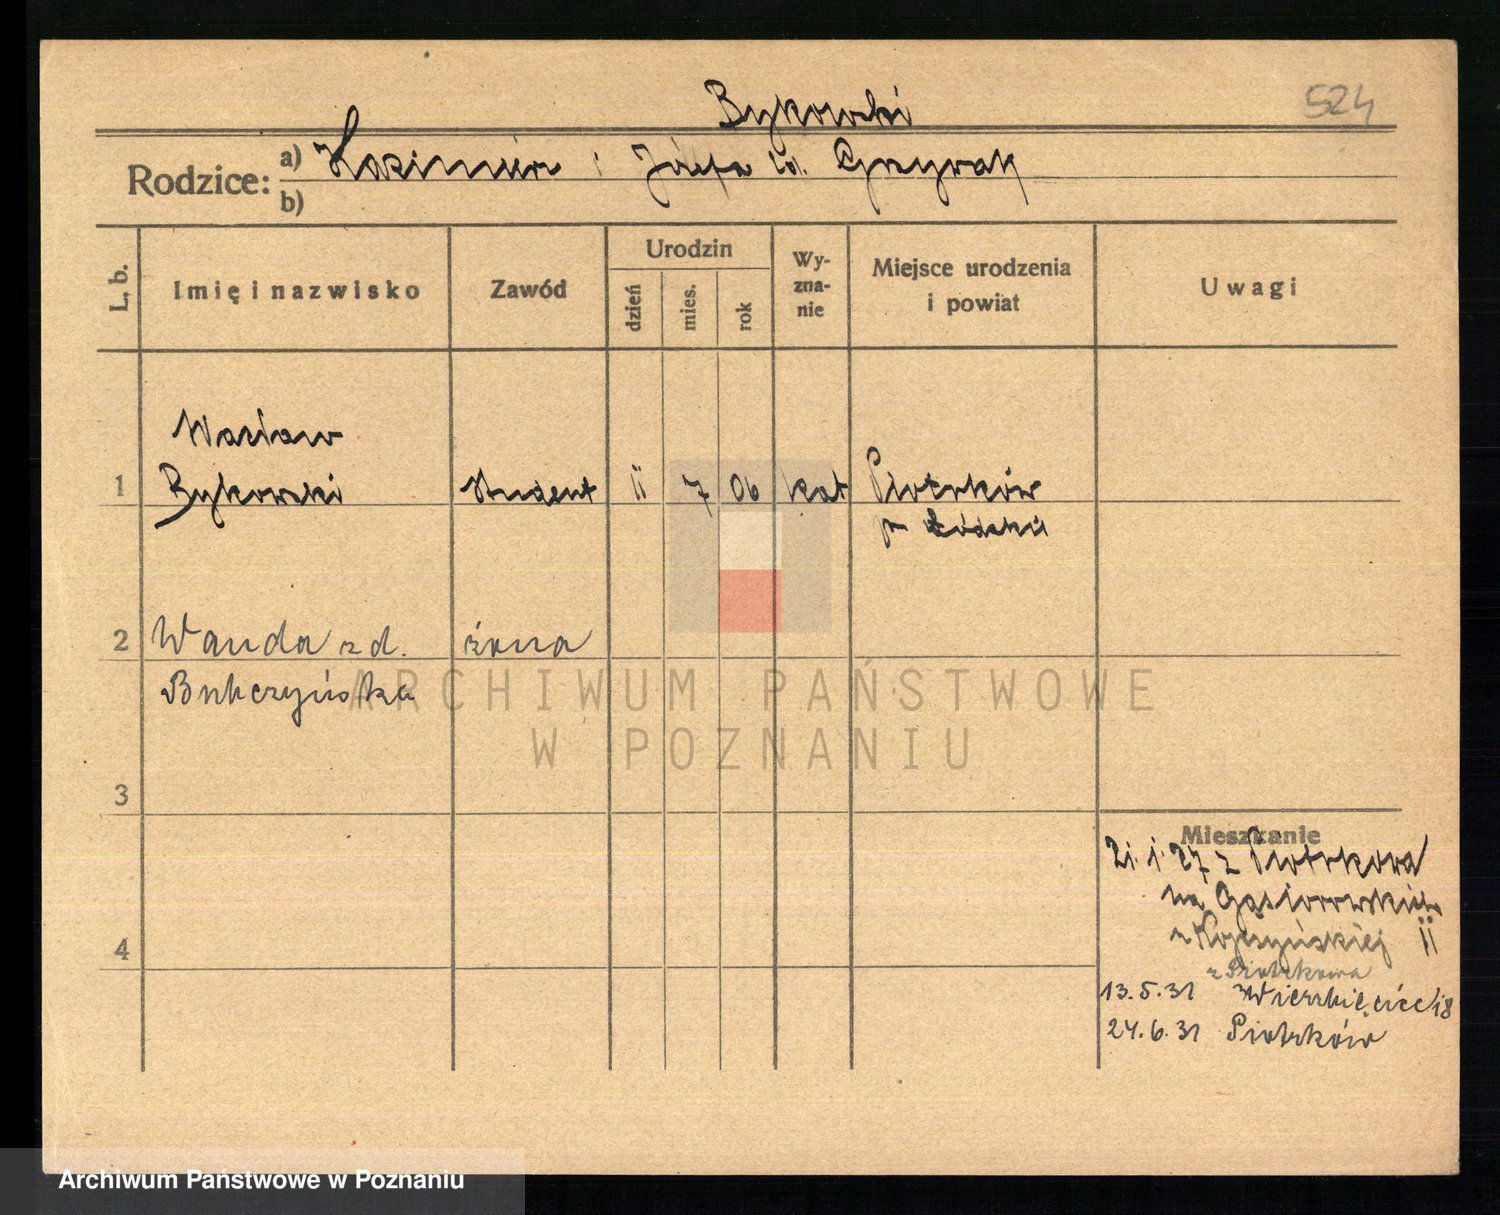 524
Bykowski
Rodzice: a) Kazimierz i Józefa zd. Grzywak
b)
L. b. Imię i nazwisko Zawód Urodzin dzień mies. rok Wyznanie Miejsce urodzenia i powiat Uwagi
Wacław
1 Bykowski student 11 7 06 kat Piotrków
p Łódzki
2 Wanda zd. żona
3
4
Mieszkanie
21 1 27 z Piotrkowa
na Gąsiorowskich
11
z Piotrkowa
13.5.31 Wierzbięcice 18
24.6.31 Piotrków
ARCHIWUM PAŃSTWOWE
W POZNANIU
Archiwum Państwowe w Poznaniu